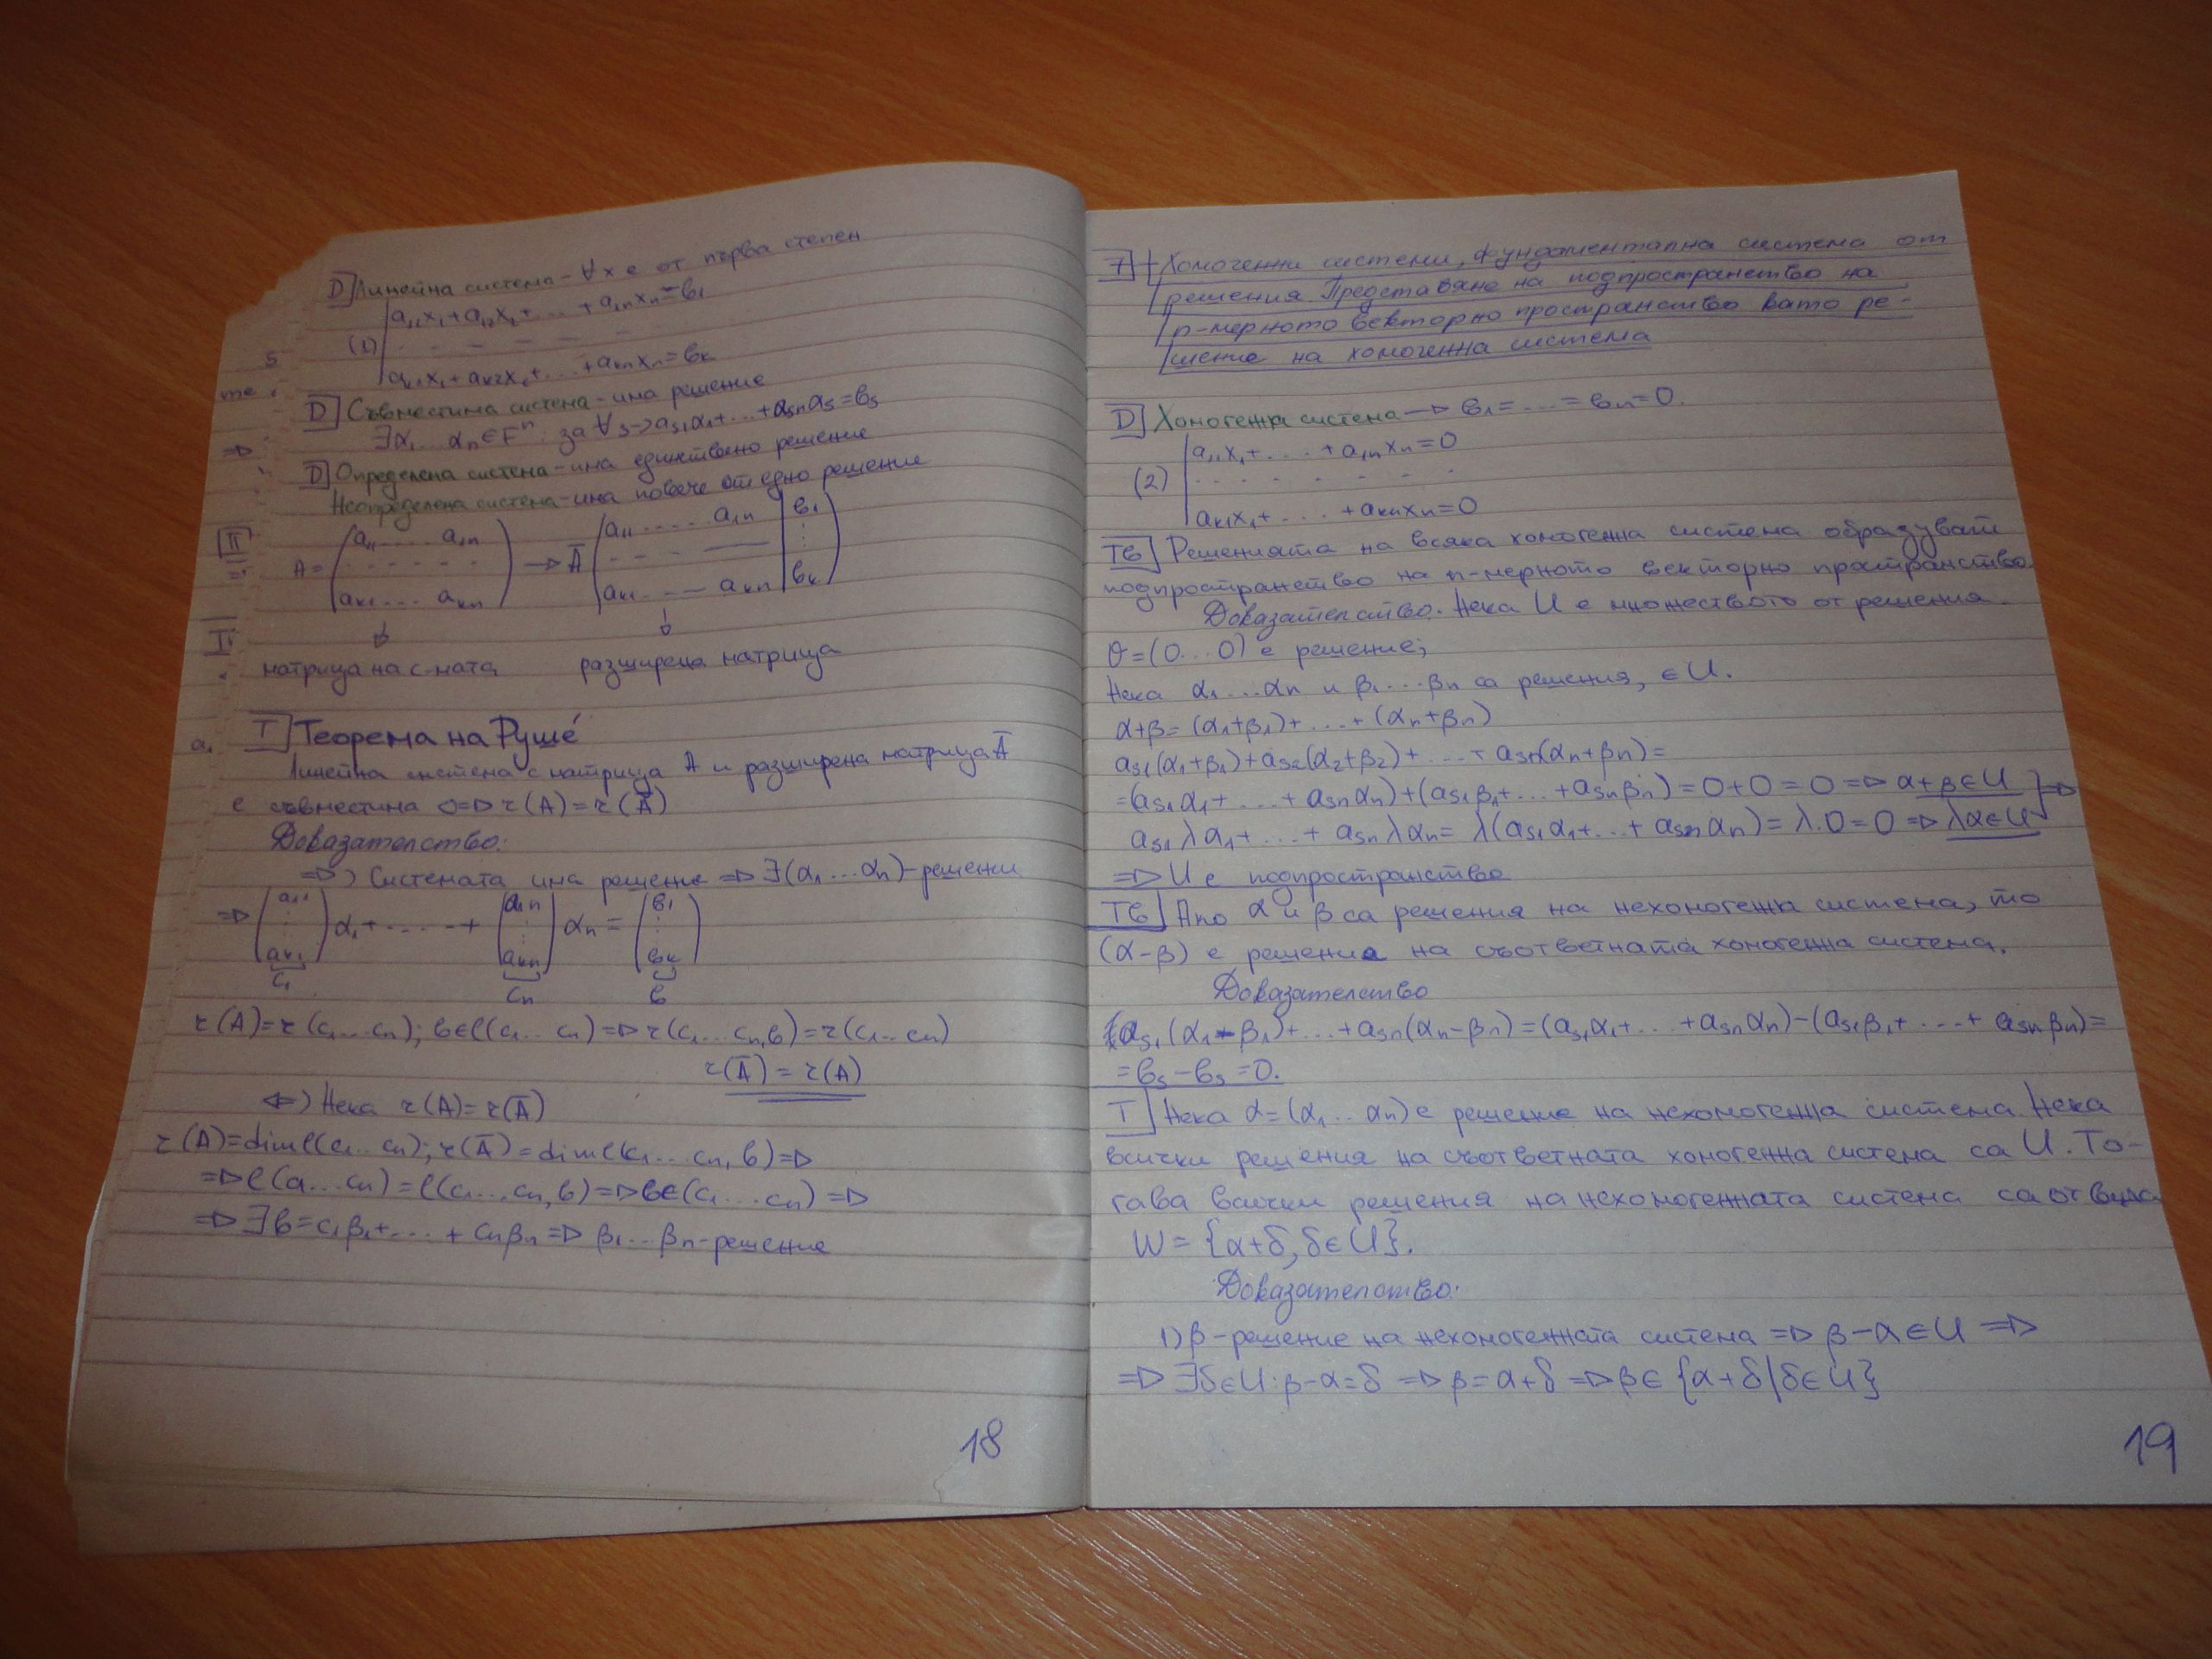 D Линейна система - ∀ x е от първа степен
a₁₁x₁+a₁₂x₂+ ... +a₁ₙxₙ=b₁
(1) - - - - -
aₖ₁x₁+aₖ₂x₂+ ... +aₖₙxₙ=bₖ
D Съвместима система - има решение
∃α₁...αₙ∈Fⁿ: за ∀s→aₛ₁α₁+...+aₛₙαₛ=bₛ
D Определена система - има единствено решение
Неопределена система - има повече от едно решение
A= (a₁₁ ... a₁ₙ ⇾ Ā (a₁₁ ..... a₁ₙ | b₁
aₖ₁ ... aₖₙ) aₖ₁ ... aₖₙ | bₖ)
матрица на с-мата разширена матрица
T Теорема на Руше́
Линейна система с матрица A и разширена матрица Ā
е съвместима <=> r(A)=r(Ā)
Доказателство:
=>) Системата има решение => ∃(α₁...αₙ)-решения
=> (a₁₁ ⋮ aₖ₁) α₁+ ..... + (a₁ₙ ⋮ aₖₙ) αₙ = (b₁ ⋮ bₖ)
c₁ cₙ b
r(A)=r(c₁...cₙ); b∈ℓ(c₁...cₙ) => r(c₁...cₙ,b)=r(c₁...cₙ)
r(Ā)=r(A)
<=) Нека r(A)=r(Ā)
r(A)=dimℓ(c₁...cₙ); r(Ā)=dimℓ(c₁...cₙ,b) =>
=> ℓ(c₁...cₙ)=ℓ(c₁...cₙ,b) => b∈(c₁...cₙ) =>
=> ∃b=c₁β₁+...+cₙβₙ => β₁...βₙ-решение
18
7 Хомогенни системи, фундаментална система от
решения. Представяне на подпространство на
n-мерното векторно пространство като ре-
шение на хомогенна система
D Хомогенна система → b₁=...=bₙ=0.
a₁₁x₁+...+a₁ₙxₙ=0
(2) - - - - -
aₖ₁x₁+...+aₖₙxₙ=0
Тв Решенията на всяка хомогенна система образуват
подпространство на n-мерното векторно пространство.
Доказателство. Нека U е множеството от решения.
θ=(0...0) е решение;
Нека α₁...αₙ и β₁...βₙ са решения, ∈U.
α+β=(α₁+β₁)+...+(αₙ+βₙ)
aₛ₁(α₁+β₁)+aₛ₂(α₂+β₂)+...+aₛₙ(αₙ+βₙ)=
=(aₛ₁α₁+...+aₛₙαₙ)+(aₛ₁β₁+...+aₛₙβₙ)=0+0=0 => α+β∈U } =>
aₛ₁λα₁+...+aₛₙλαₙ=λ(aₛ₁α₁+...+aₛₙαₙ)=λ.0=0 => λα∈U
=> U е подпространство
Тв Ако α и β са решения на нехомогенна система, то
(α-β) е решение на съответната хомогенна система.
Доказателство
aₛ₁(α₁-β₁)+...+aₛₙ(αₙ-βₙ)=(aₛ₁α₁+...+aₛₙαₙ)-(aₛ₁β₁+...+aₛₙβₙ)=
=bₛ-bₛ=0.
T Нека α=(α₁...αₙ) е решение на нехомогенна система. Нека
всички решения на съответната хомогенна система са U. То-
гава всички решения на нехомогенната система са от вида
W={α+δ, δ∈U}.
Доказателство:
1) β-решение на нехомогенната система => β-α∈U =>
=> ∃δ∈U: β-α=δ => β=α+δ => β∈{α+δ|δ∈U}
19